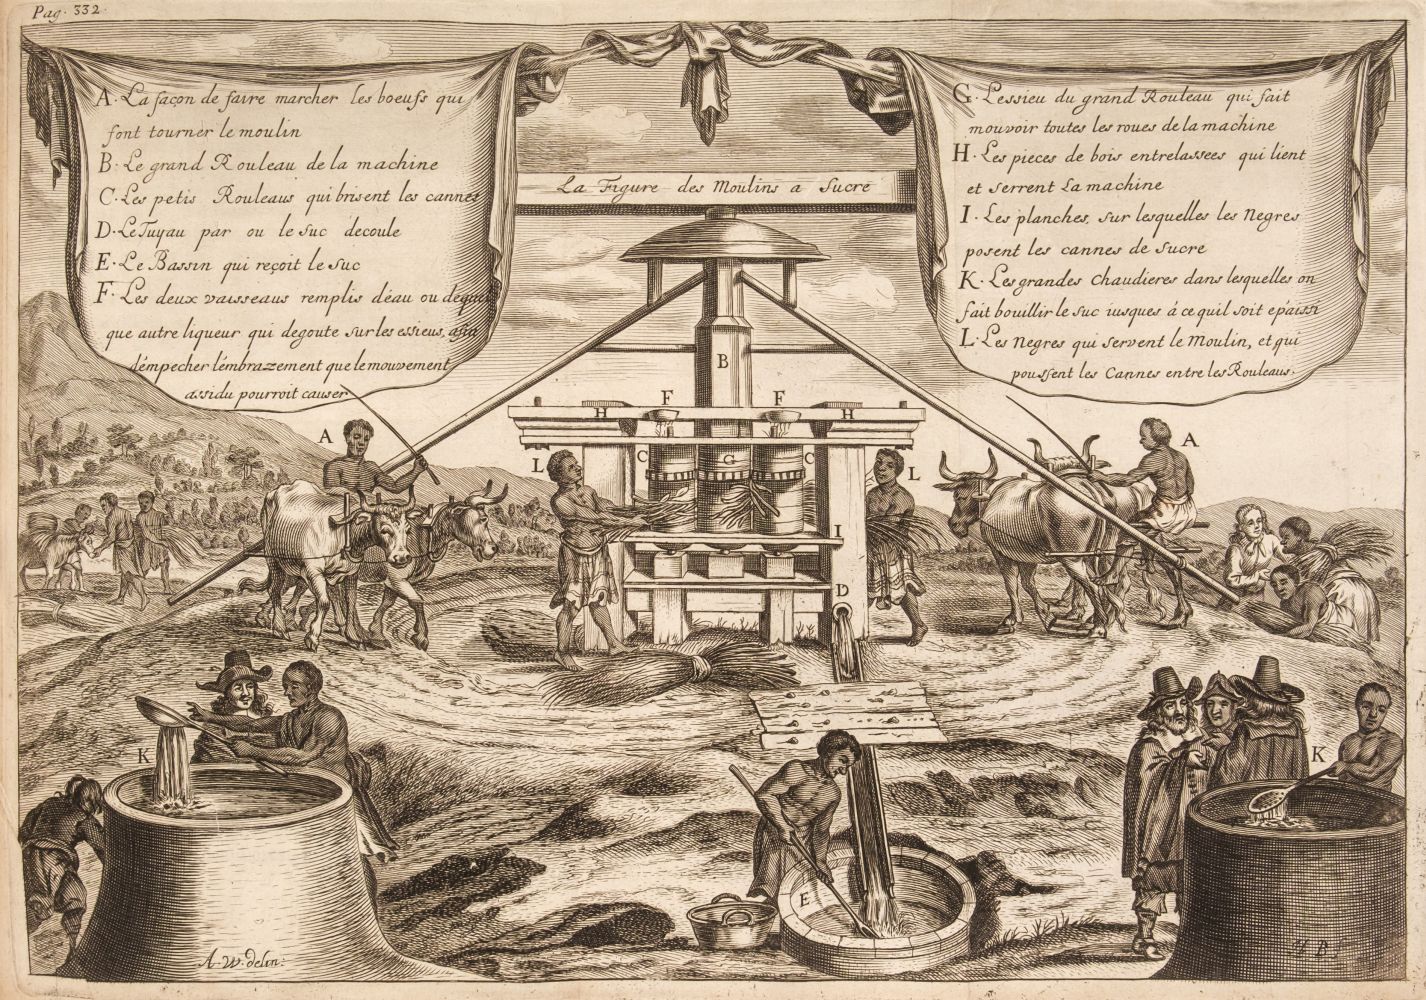 Pag. 332
A. La façon de faire marcher les boeufs qui
font tourner le moulin
B. Le grand Rouleau de la machine
C. Les petis Rouleaus qui brisent les cannes
D. Le Tuyau par ou le suc découle
E. Le Bassin qui reçoit le suc
F. Les deux vaisseaus remplis déau ou déquel
que autre liqueur qui degoute sur les essieus, afin
démpecher lémbrazement que le mouvement
assidu pourroit causer
La Figure des Moulins a Sucre
G. Lessieu du grand Rouleau qui fait
mouvoir toutes les roues de la machine
H. Les pieces de bois entrelassees qui lient
et serrent La machine
I. Les planches, sur lesquelles les Negres
posent les cannes de sucre
K. Les grandes chaudieres dans lesquelles on
fait bouillir le suc iusques á ce quil soit épaissi
L. Les Negres qui servent le Moulin, et qui
poussent les Cannes entre les Rouleaus.
B
F F
H H
A A
L C G C L
I
D
K K
E
A. W. delin: